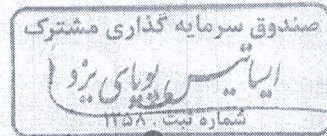 صندوق سرمایه گذاری مشترک
ایساتیس پویای یزد
شماره ثبت ۱۱۲۵۸